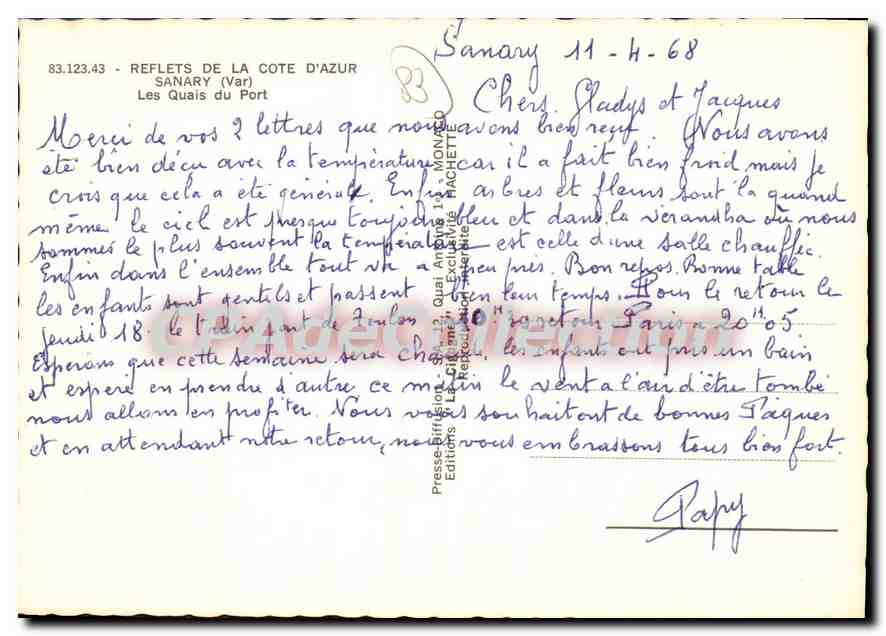 Sanary 11-4-68
83.123.43 - REFLETS DE LA COTE D'AZUR
SANARY (Var)
Les Quais du Port
83
Chers Gladys et Jacques
Merci de vos 2 lettres que nous avons bien reçu. Nous avons
été bien déçu avec la température car il a fait bien froid mais je
crois que cela a été général. Enfin arbres et fleurs sont là quand
même le ciel est presque toujours bleu et dans la véranda où nous
sommes le plus souvent la température est celle d'une salle chauffée.
Enfin dans l'ensemble tout va à peu près. Bon repos. Bonne table
les enfants sont gentils et passent bien leur temps. Pour le retour le
jeudi 18. le train part de Toulon 10H Paris a 20H05
Esperons que cette semaine sera chaude, les enfants ont pris un bain
et espère en prendre d'autre ce matin le vent a l'air d'être tombé
nous allons en profiter. Nous vous souhaitont de bonnes Pâques
et en attendant notre retour, nous vous embrassons tous bien fort.
Papy
Presse-Diffusion - S.A. - 2, Quai Antoine 1er - MONACO
Editions "La Cigogne" - Exclusivité HACHETTE
Reproduction interdite
CPAdeCollection